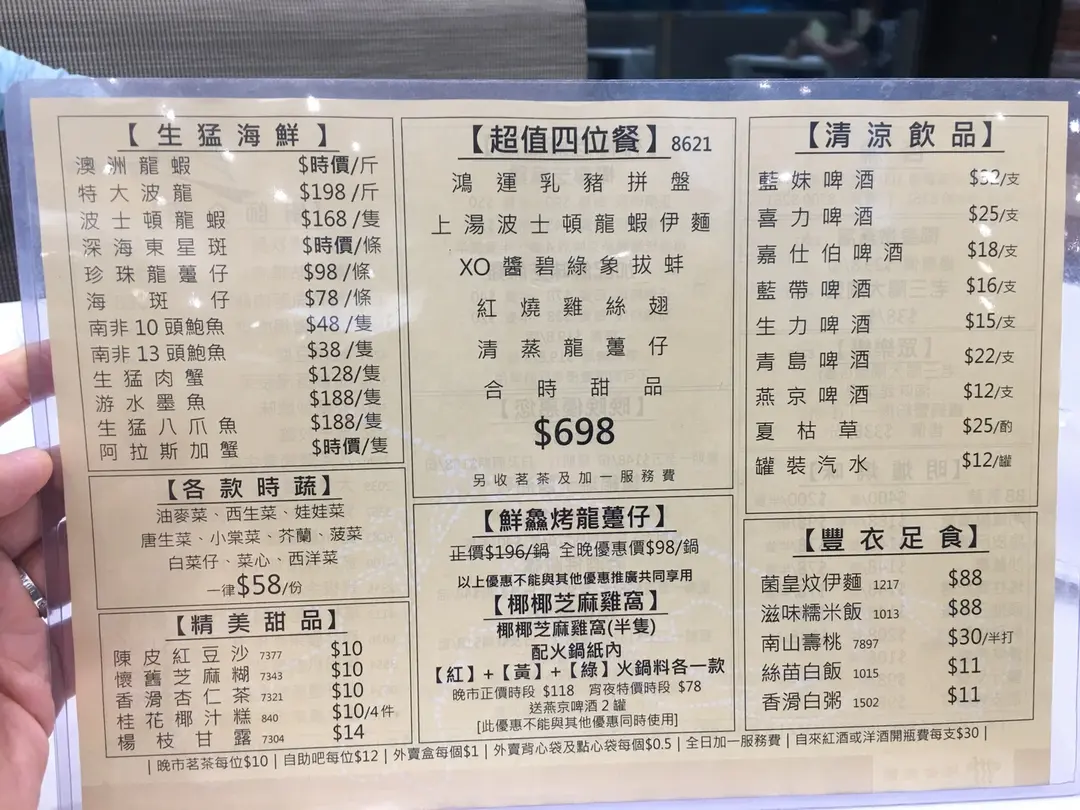 【生猛海鮮】
澳洲龍蝦 $時價/斤
特大波龍 $198/斤
波士頓龍蝦 $168/隻
深海東星斑 $時價/條
珍珠龍躉仔 $98/條
海斑仔 $78/條
南非10頭鮑魚 $48/隻
南非13頭鮑魚 $38/隻
生猛肉蟹 $128/隻
游水墨魚 $188/隻
生猛八爪魚 $188/隻
阿拉斯加蟹 $時價/隻
【各款時蔬】
油麥菜、西生菜、娃娃菜
唐生菜、小棠菜、芥蘭、菠菜
白菜仔、菜心、西洋菜
一律$58/份
【精美甜品】
陳皮紅豆沙 7377 $10
懷舊芝麻糊 7343 $10
香滑杏仁茶 7321 $10
桂花椰汁糕 840 $10/4件
楊枝甘露 7304 $14
【超值四位餐】8621
鴻運乳豬拼盤
上湯波士頓龍蝦伊麵
XO醬碧綠象拔蚌
紅燒雞絲翅
清蒸龍躉仔
合時甜品
$698
另收茗茶及加一服務費
【鮮鱻烤龍躉仔】
正價$196/鍋 全晚優惠價$98/鍋
以上優惠不能與其他優惠推廣共同享用
【椰椰芝麻雞窩】
椰椰芝麻雞窩(半隻)
配火鍋紙內
【紅】+【黃】+【綠】火鍋料各一款
晚市正價時段 $118 宵夜特價時段 $78
送燕京啤酒2罐
[此優惠不能與其他優惠同時使用]
【清涼飲品】
藍妹啤酒 $32/支
喜力啤酒 $25/支
嘉仕伯啤酒 $18/支
藍帶啤酒 $16/支
生力啤酒 $15/支
青島啤酒 $22/支
燕京啤酒 $12/支
夏枯草 $25/酌
罐裝汽水 $12/罐
【豐衣足食】
菌皇炆伊麵 1217 $88
滋味糯米飯 1013 $88
南山壽桃 7897 $30/半打
絲苗白飯 1015 $11
香滑白粥 1502 $11
|晚市茗茶每位$10|自助吧每位$12|外賣盒每個$1|外賣背心袋及點心袋每個$0.5|全日加一服務費|自來紅酒或洋酒開瓶費每支$30|